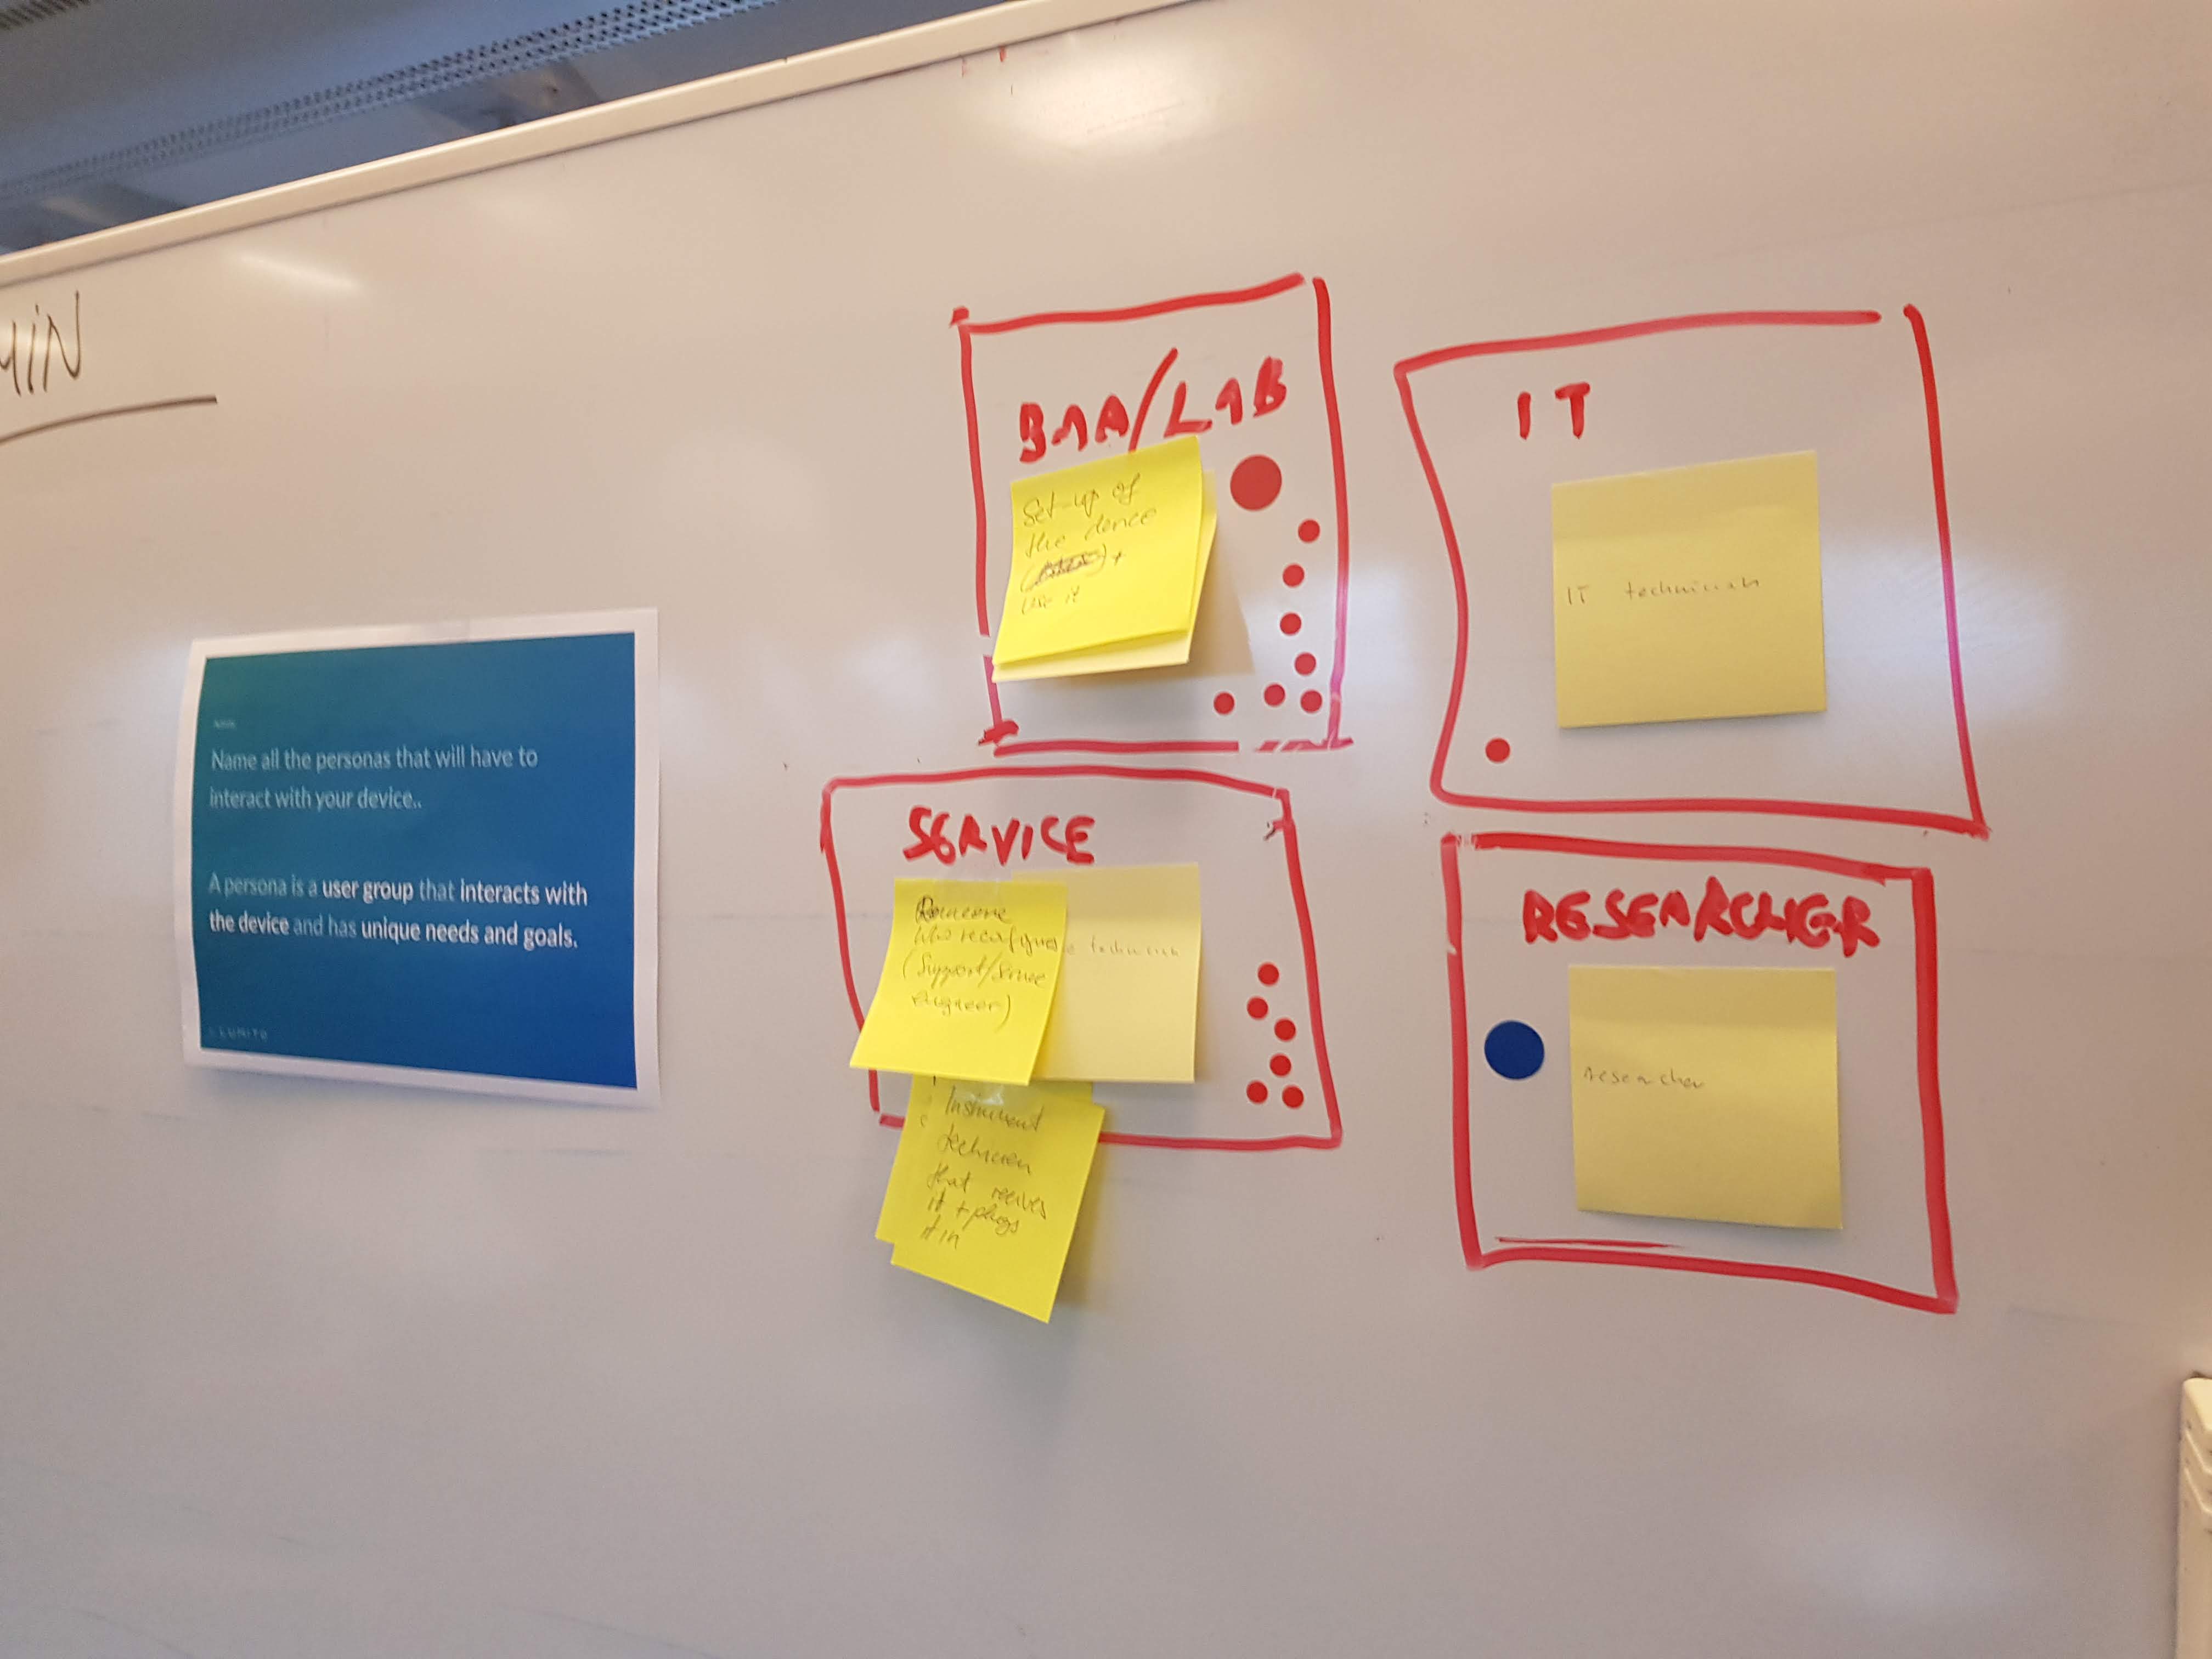 MIN
Name all the personas that will have to
interact with your device..
A persona is a user group that interacts with
the device and has unique needs and goals.
LUMITO
BMA/LAB
Set-up of
the device
+
use it
IT
IT technician
SERVICE
Someone
who
(Support/Service
engineer)
e technician
Instrument
technicien
that reeives
it + plugs
it in
RESEARCHER
Researcher